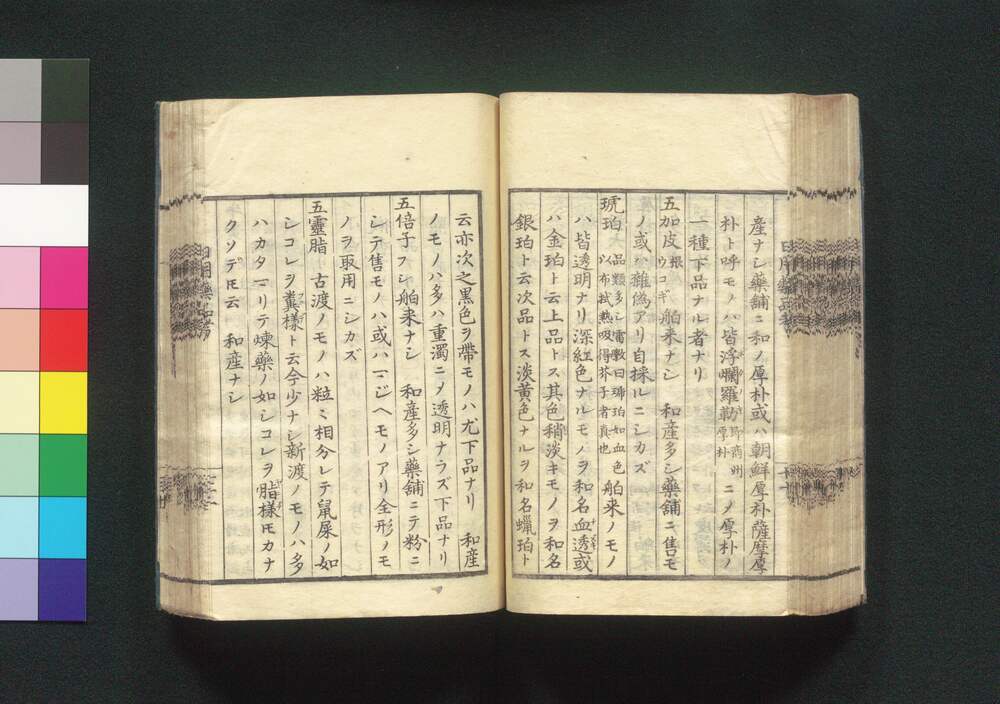 産ナシ藥舗ニ和ノ厚朴或ハ朝鮮厚朴薩摩厚
朴ト呼モノハ皆浮爛羅勒即商州厚朴ニメ厚朴ノ
一種下品ナル者ナリ
五加皮根ウコギ舶来ナシ 和産多シ藥舗ニ售モ
ノ或ハ雜偽アリ自採ルニシカズ
琥珀 品類多シ雷斅曰琥珀如血色以布拭熱吸得芥子者真也 舶来ノモノ
ハ皆透明ナリ深紅色ナルモノヲ和名血透或
ハ金珀ト云上品トス其色稍淡キモノヲ和名
銀珀ト云次品トス淡黄色ナルヲ和名蠟珀ト
云亦次之黒色ヲ帶モノハ尤下品ナリ 和産
ノモノハ多ハ重濁ニメ透明ナラズ下品ナリ
五倍子フシ舶来ナシ 和産多シ藥舗ニテ粉ニ
シテ售モノハ或ハマジヘモノアリ全形ノモ
ノヲ取用ニシカズ
五靈脂 古渡ノモノハ粒々相分レテ鼠屎ノ如
シコレヲ糞樣ト云今少ナシ新渡ノモノハ多
ハカタマリテ煉藥ノ如シコレヲ脂樣𪜈カナ
クソデ𪜈云 和産ナシ
日用藥品考